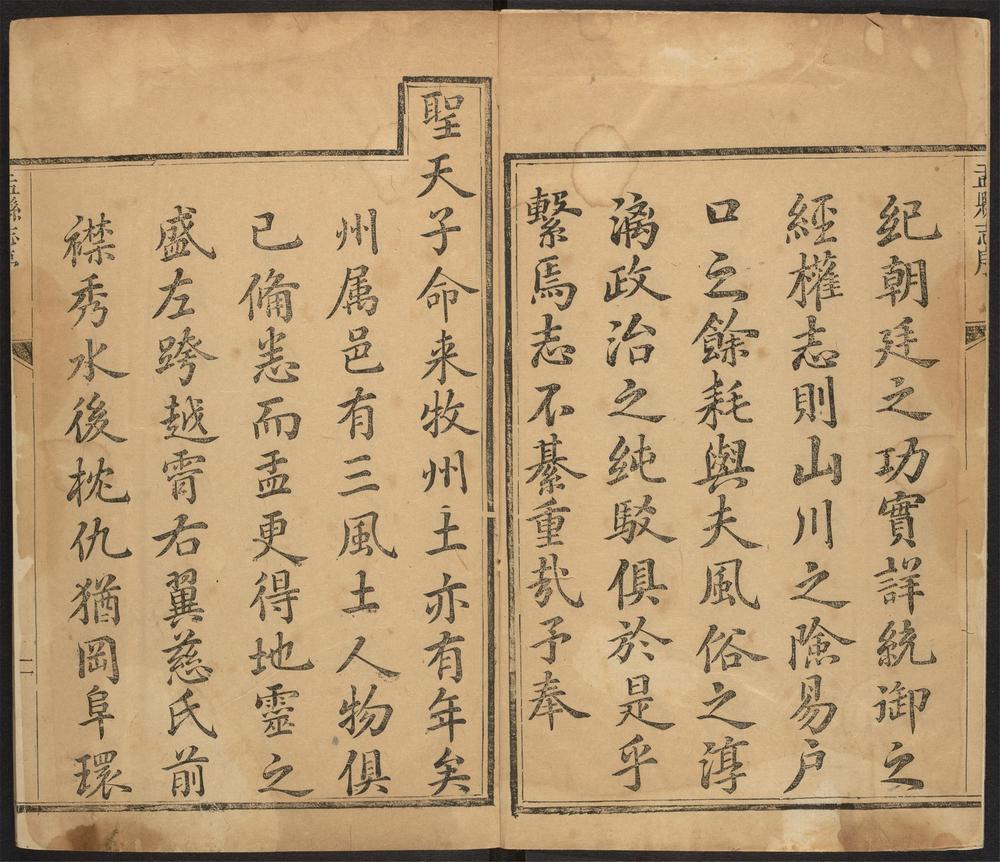 盂縣志序
紀朝廷之功實詳統御之
經權志則山川之險易户
口之餘耗與夫風俗之淳
漓政治之純駁俱於是乎
繫焉志不綦重㢤予奉
聖天子命来牧州土亦有年矣
州属邑有三風土人物俱
已俻悉而盂更得地靈之
盛左跨越霄右翼慈氏前
襟秀水後枕仇猶岡阜環
盂縣志序
二